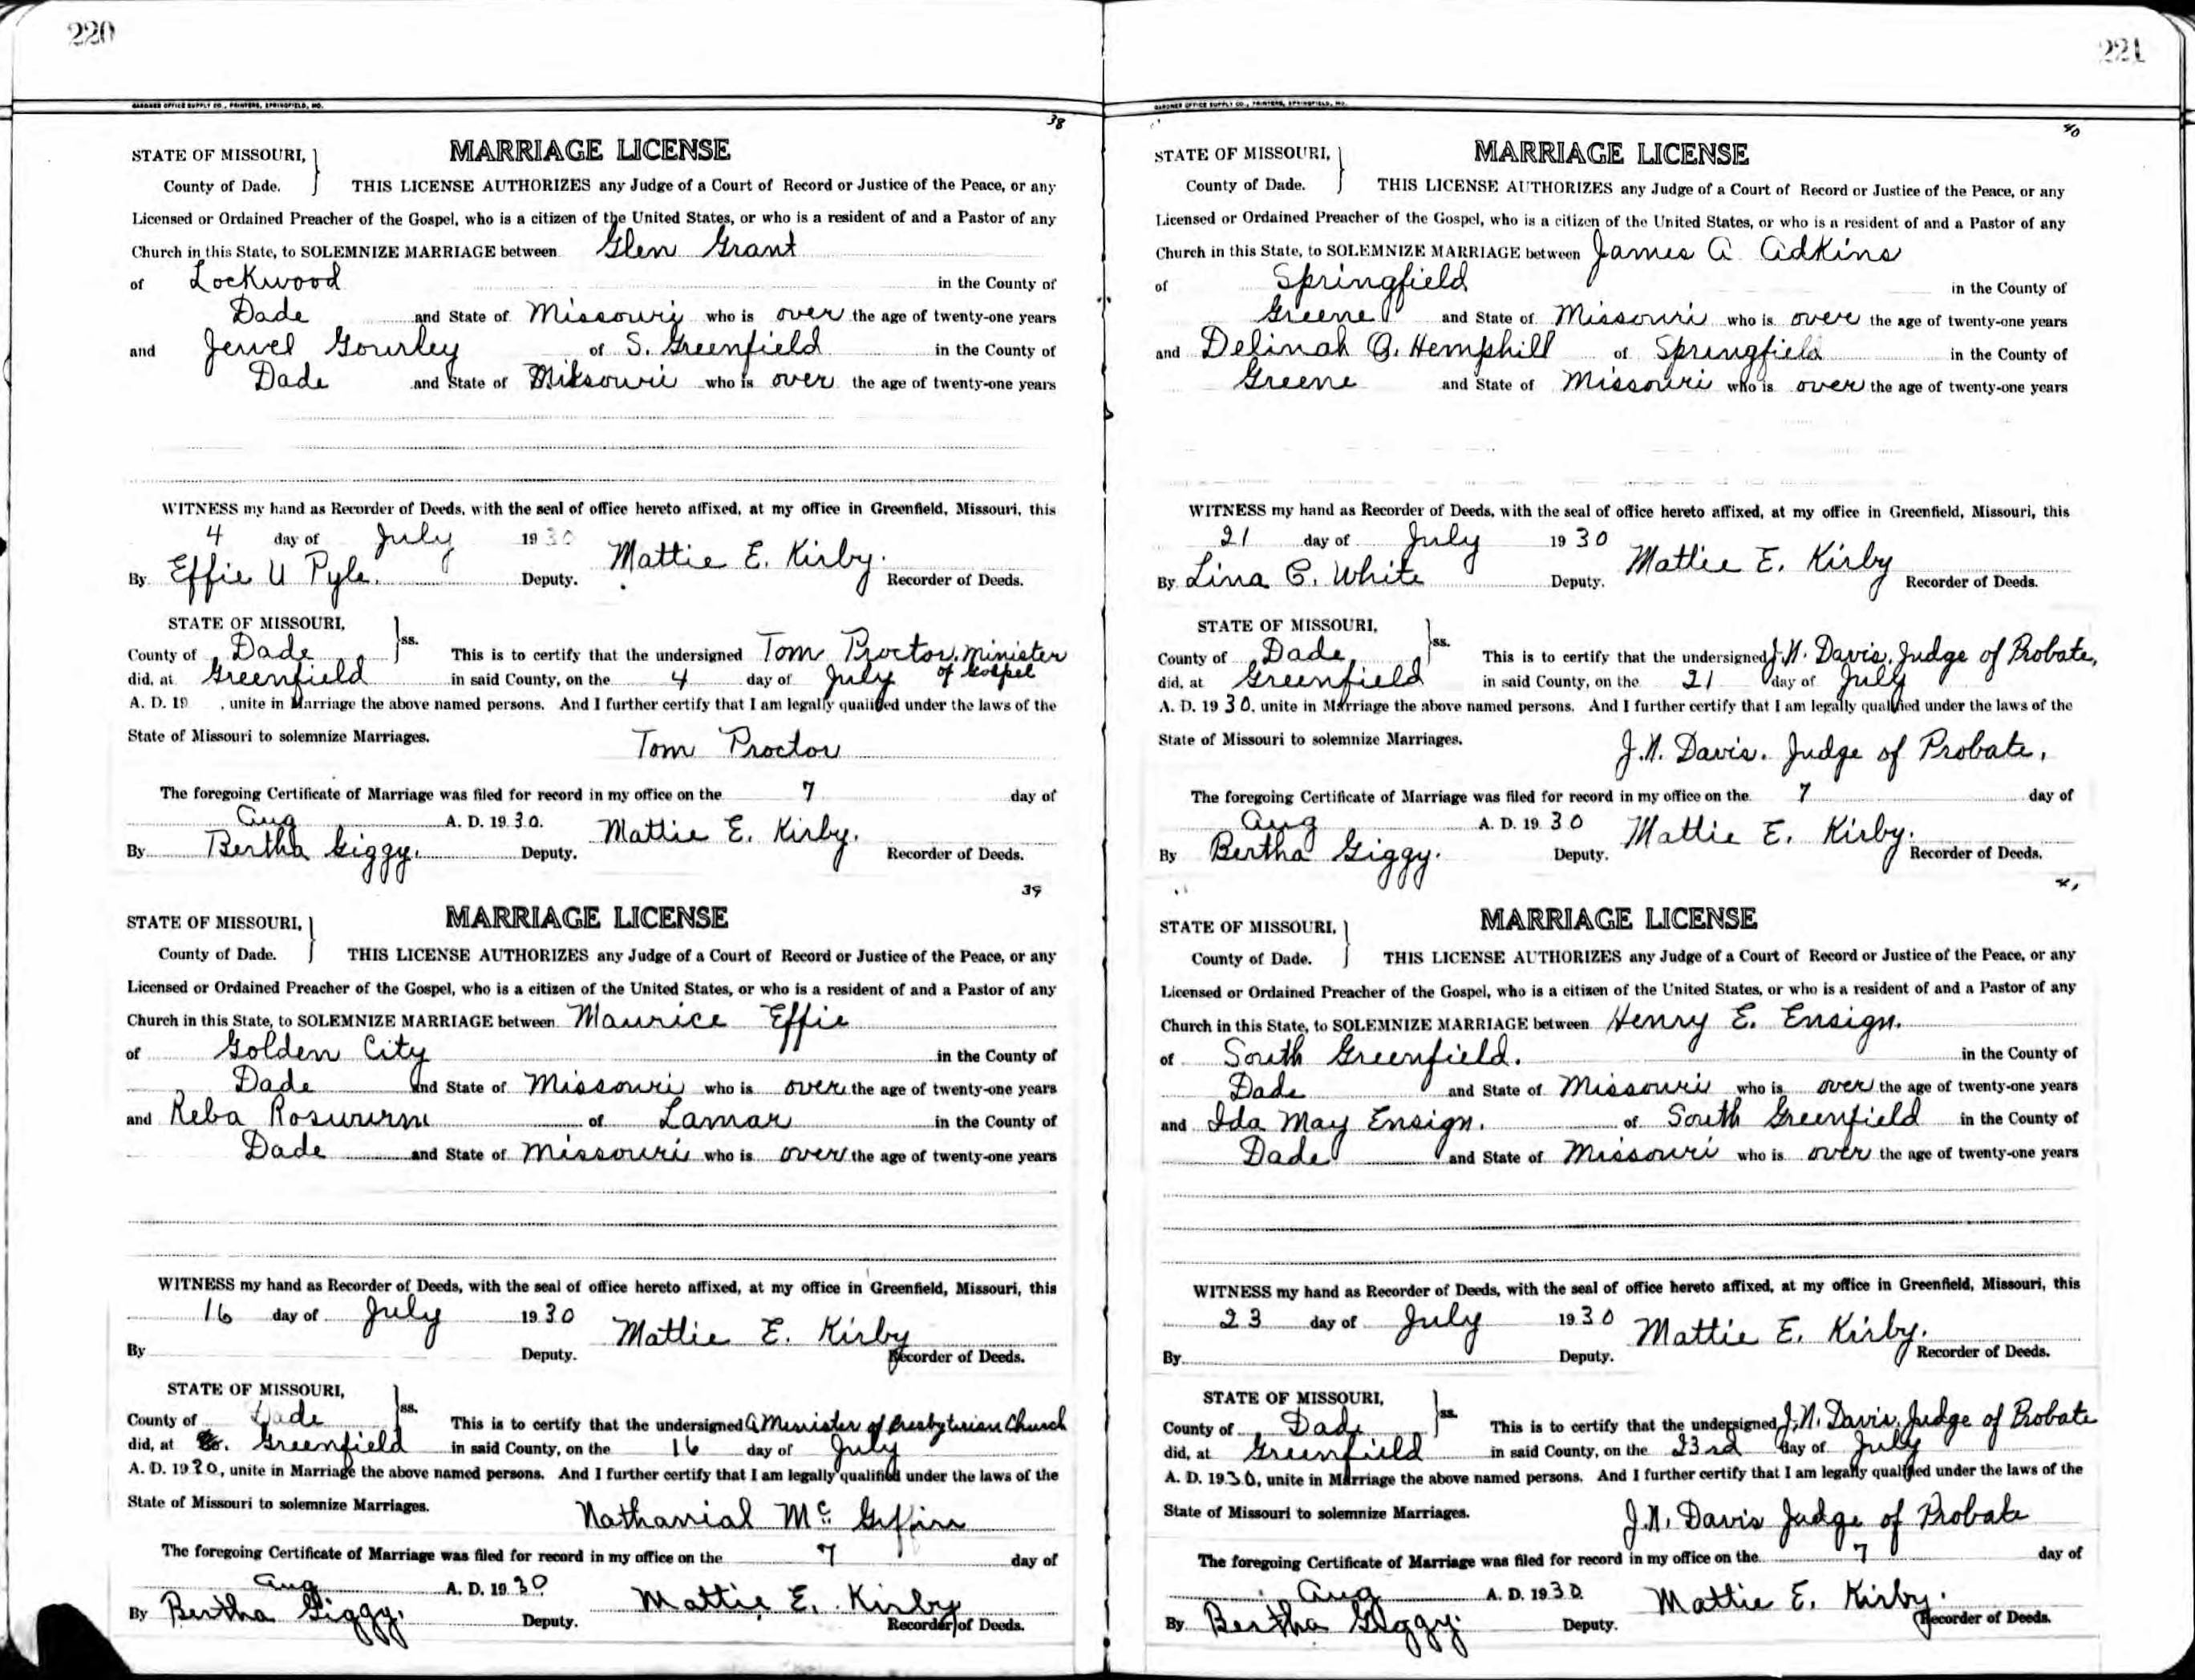 220
GARDNER OFFICE SUPPLY CO., PRINTERS, SPRINGFIELD, MO.
38
MARRIAGE LICENSE
STATE OF MISSOURI,
County of Dade. THIS LICENSE AUTHORIZES any Judge of a Court of Record or Justice of the Peace, or any
Licensed or Ordained Preacher of the Gospel, who is a citizen of the United States, or who is a resident of and a Pastor of any
Church in this State, to SOLEMNIZE MARRIAGE between Glen Grant
of Lockwood in the County of
Dade and State of Missouri who is over the age of twenty-one years
and Jewel Gourley of S. Greenfield in the County of
Dade and State of Missouri who is over the age of twenty-one years
WITNESS my hand as Recorder of Deeds, with the seal of office hereto affixed, at my office in Greenfield, Missouri, this
4 day of July 1930 Mattie E. Kirby.
By Effie U Pyle. Deputy. Recorder of Deeds.
STATE OF MISSOURI,
County of Dade ss. This is to certify that the undersigned Tom Proctor, Minister
of Gospel
did, at Greenfield in said County, on the 4 day of July
A. D. 19 , unite in Marriage the above named persons. And I further certify that I am legally qualified under the laws of the
State of Missouri to solemnize Marriages. Tom Proctor
The foregoing Certificate of Marriage was filed for record in my office on the 7 day of
Aug A. D. 1930. Mattie E. Kirby.
By Bertha Giggy. Deputy. Recorder of Deeds.
39
MARRIAGE LICENSE
STATE OF MISSOURI,
County of Dade. THIS LICENSE AUTHORIZES any Judge of a Court of Record or Justice of the Peace, or any
Licensed or Ordained Preacher of the Gospel, who is a citizen of the United States, or who is a resident of and a Pastor of any
Church in this State, to SOLEMNIZE MARRIAGE between Maurice Effie
of Golden City in the County of
Dade and State of Missouri who is over the age of twenty-one years
and Reba of Lamar in the County of
Dade and State of Missouri who is over the age of twenty-one years
WITNESS my hand as Recorder of Deeds, with the seal of office hereto affixed, at my office in Greenfield, Missouri, this
16 day of July 1930 Mattie E. Kirby
By Deputy. Recorder of Deeds.
STATE OF MISSOURI,
County of Dade ss. This is to certify that the undersigned a Minister of Presbyterian Church
did, at Greenfield in said County, on the 16 day of July
A. D. 1930, unite in Marriage the above named persons. And I further certify that I am legally qualified under the laws of the
State of Missouri to solemnize Marriages. Nathanial Mc Giffin
The foregoing Certificate of Marriage was filed for record in my office on the 7 day of
Aug A. D. 1930 Mattie E. Kirby
By Bertha Giggy. Deputy. Recorder of Deeds.
221
GARDNER OFFICE SUPPLY CO., PRINTERS, SPRINGFIELD, MO.
40
MARRIAGE LICENSE
STATE OF MISSOURI,
County of Dade. THIS LICENSE AUTHORIZES any Judge of a Court of Record or Justice of the Peace, or any
Licensed or Ordained Preacher of the Gospel, who is a citizen of the United States, or who is a resident of and a Pastor of any
Church in this State, to SOLEMNIZE MARRIAGE between James A Adkins
of Springfield in the County of
Greene and State of Missouri who is over the age of twenty-one years
and Delinah A. Hemphill of Springfield in the County of
Greene and State of Missouri who is over the age of twenty-one years
WITNESS my hand as Recorder of Deeds, with the seal of office hereto affixed, at my office in Greenfield, Missouri, this
21 day of July 1930 Mattie E. Kirby
By Lina C. White Deputy. Recorder of Deeds.
STATE OF MISSOURI,
County of Dade ss. This is to certify that the undersigned J.N. Davis, Judge of Probate,
did, at Greenfield in said County, on the 21 day of July
A. D. 1930, unite in Marriage the above named persons. And I further certify that I am legally qualified under the laws of the
State of Missouri to solemnize Marriages. J.N. Davis. Judge of Probate,
The foregoing Certificate of Marriage was filed for record in my office on the 7 day of
Aug A. D. 1930 Mattie E. Kirby.
By Bertha Giggy. Deputy. Recorder of Deeds.
41
MARRIAGE LICENSE
STATE OF MISSOURI,
County of Dade. THIS LICENSE AUTHORIZES any Judge of a Court of Record or Justice of the Peace, or any
Licensed or Ordained Preacher of the Gospel, who is a citizen of the United States, or who is a resident of and a Pastor of any
Church in this State, to SOLEMNIZE MARRIAGE between Henry E. Ensign.
of South Greenfield. in the County of
Dade and State of Missouri who is over the age of twenty-one years
and Ida May Ensign. of South Greenfield in the County of
Dade and State of Missouri who is over the age of twenty-one years
WITNESS my hand as Recorder of Deeds, with the seal of office hereto affixed, at my office in Greenfield, Missouri, this
23 day of July 1930 Mattie E. Kirby.
By Deputy. Recorder of Deeds.
STATE OF MISSOURI,
County of Dade ss. This is to certify that the undersigned J.N. Davis, Judge of Probate
did, at Greenfield in said County, on the 23rd day of July
A. D. 1930, unite in Marriage the above named persons. And I further certify that I am legally qualified under the laws of the
State of Missouri to solemnize Marriages. J.N. Davis Judge of Probate
The foregoing Certificate of Marriage was filed for record in my office on the 7 day of
Aug A. D. 1930 Mattie E. Kirby.
By Bertha Giggy. Deputy. Recorder of Deeds.